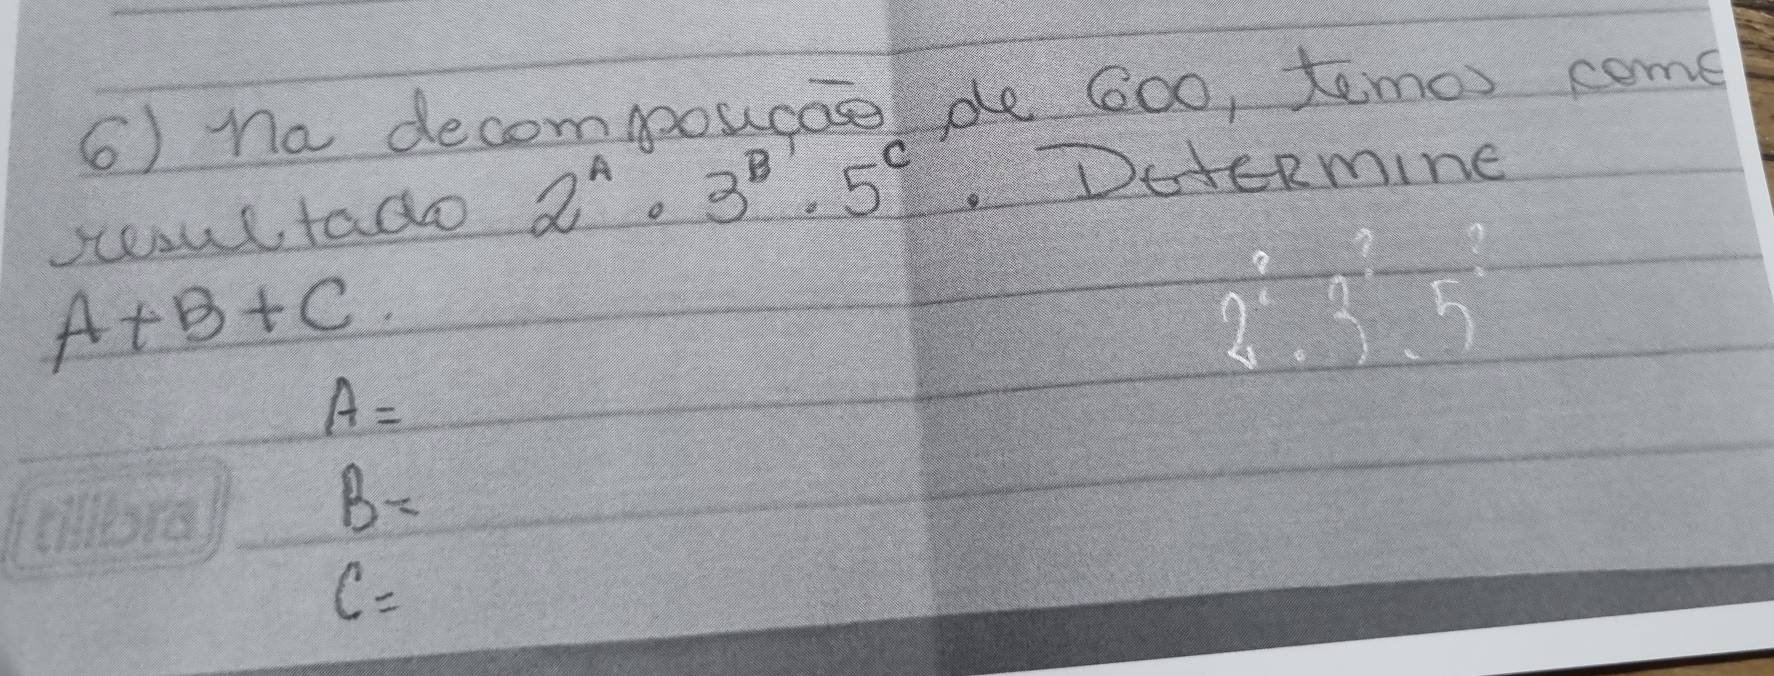 6) Na decomposição de 600, temos como
resultado 2^A . 3^B . 5^C . Determine
A+B+C.
2^? . 3^? . 5^?
A=
B=
C=
tilibra